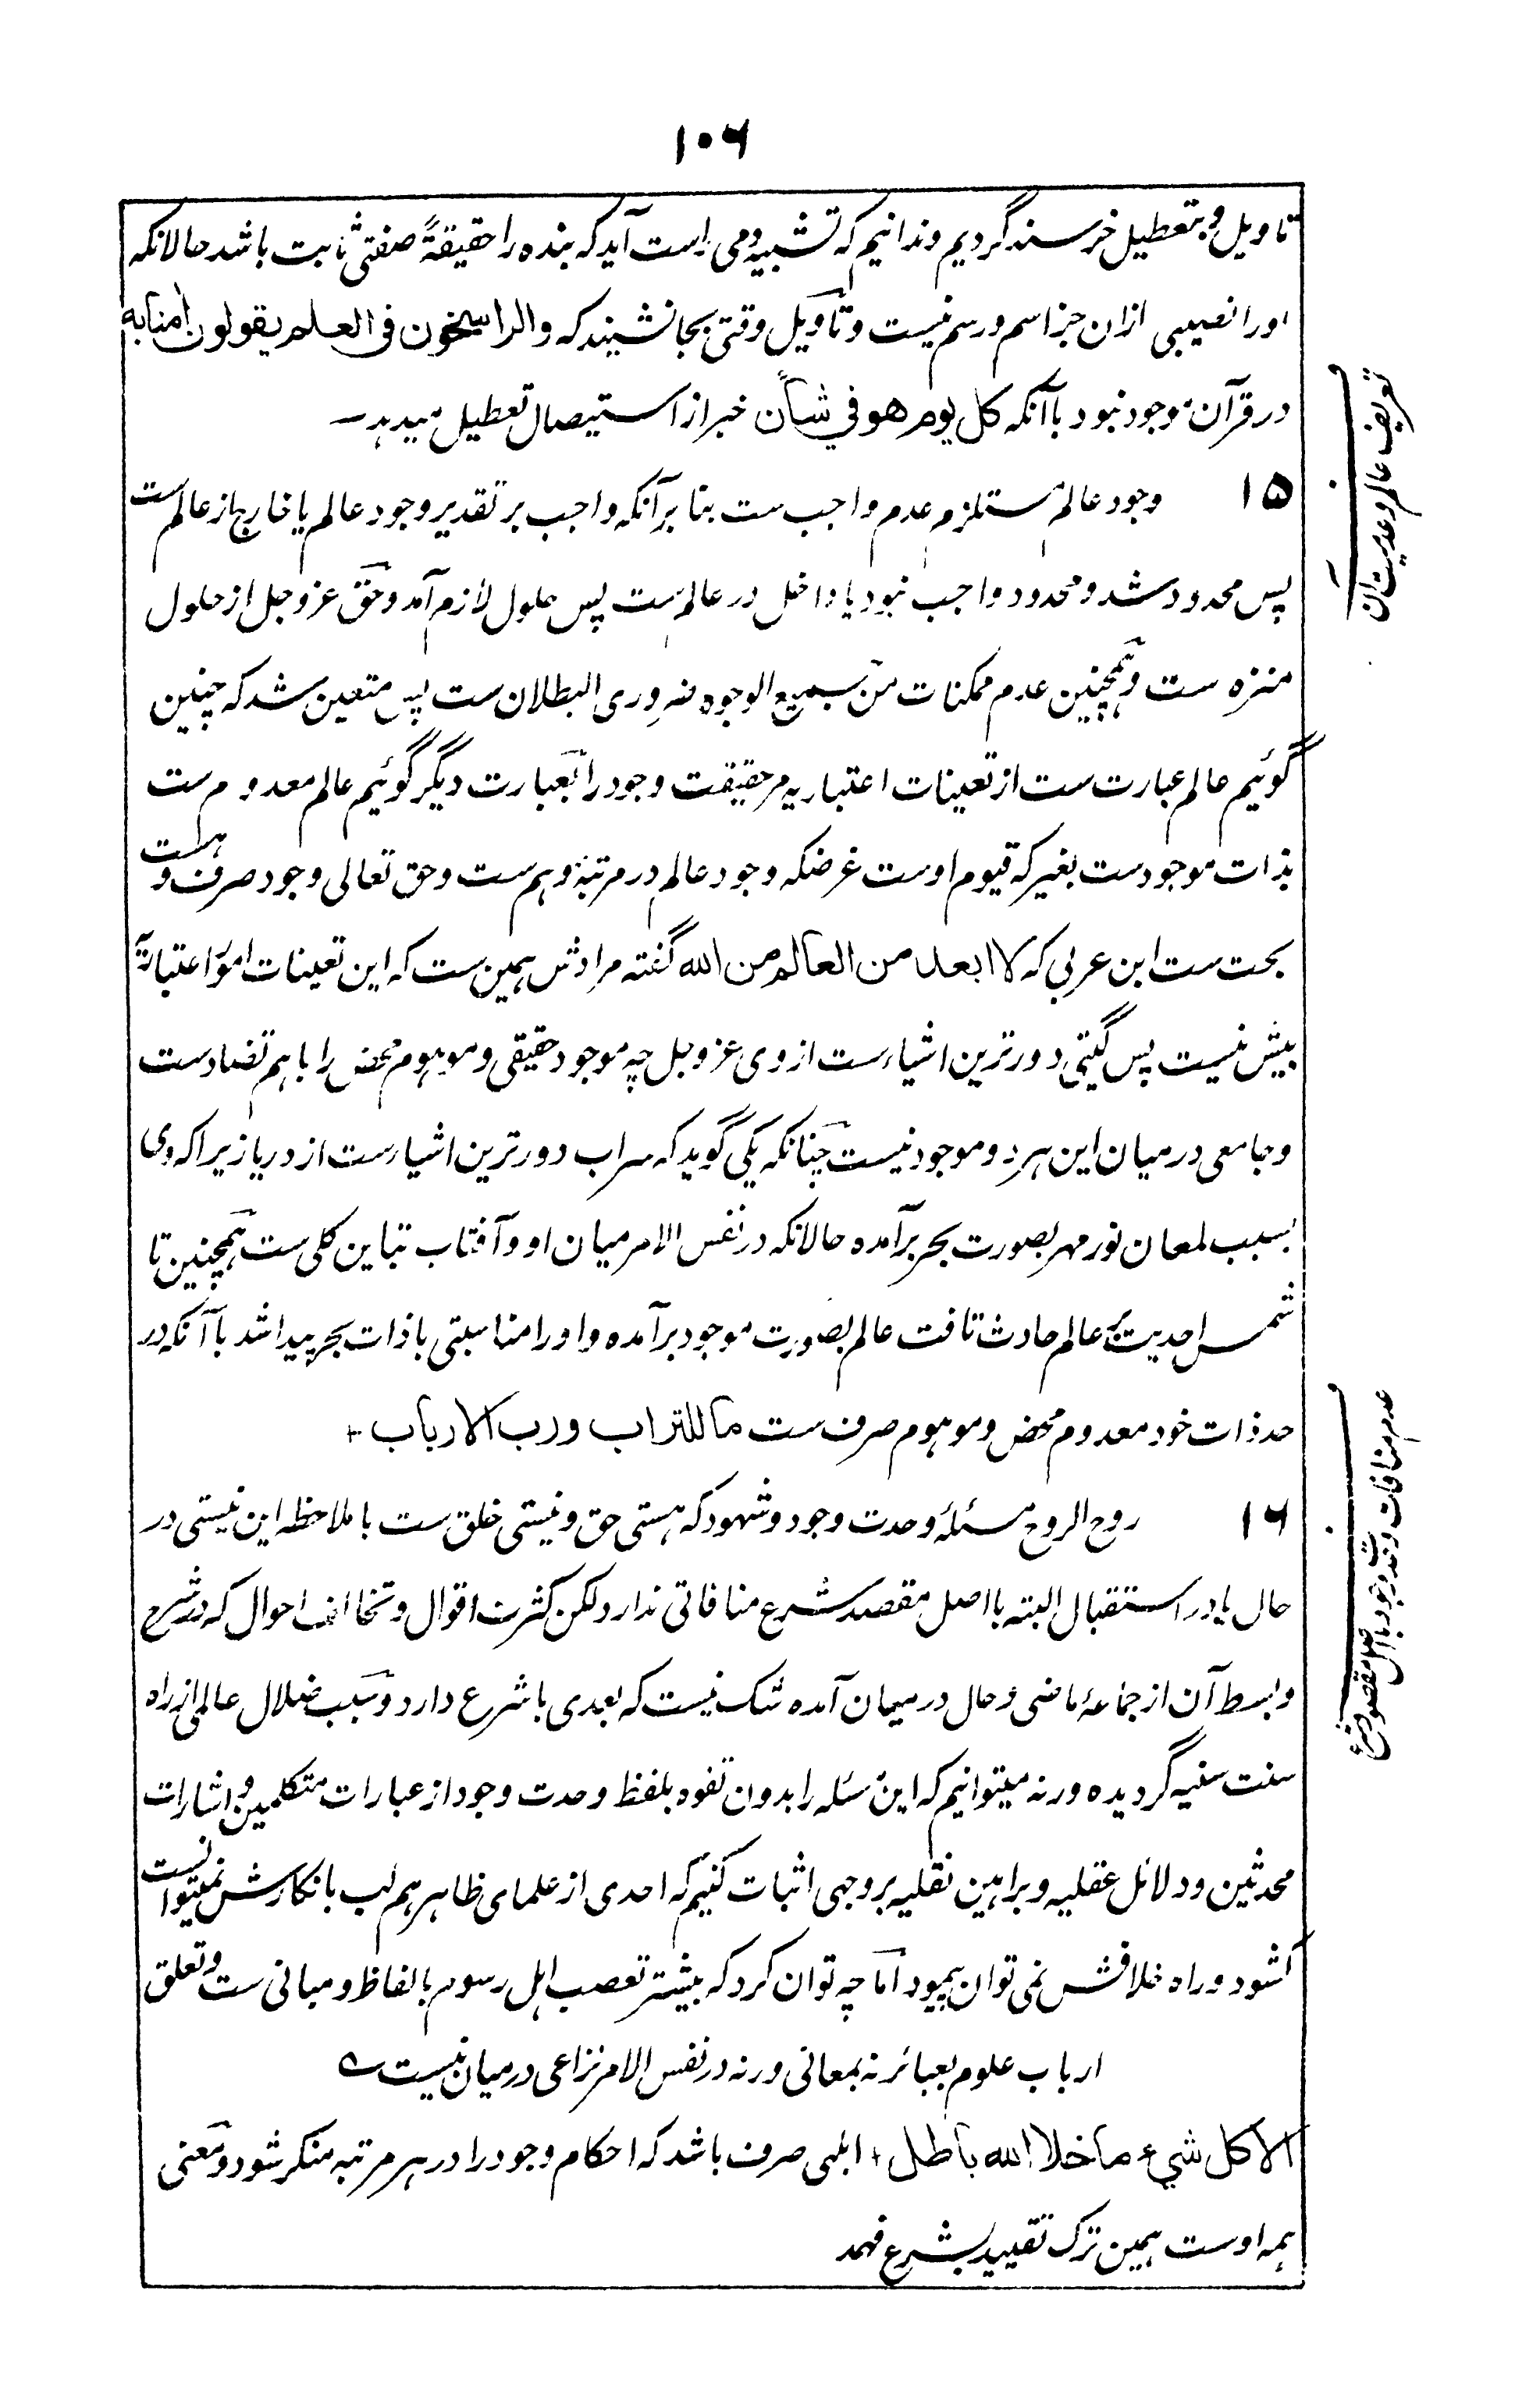 ۱۰۶
تاویل و بتعطیل خرسند گردیم و ندانیم که تشبیه دمی راست آید که بنده را حقیقةً صفتی ثابت باشد حالانکه
اورا نصیبی ازان جز اسم و رسم نیست و تاویل وقتی بجا نشیند که والراسخون فی العلم یقولون اٰمنا به
در قرآن موجود نبود با آنکه کل یوم هو فی شأن خبر از استیصال تعطیل میدهد
۱۵ وجود عالم مستلزم عدم واجب ست بنا بر آنکه واجب بر تقدیر وجود عالم یا خارج از عالم ست
پس محدود شد و محدود واجب نبود یا داخل در عالم ست پس حلول لازم آمد و حق عز و جل از حلول
منزه ست و همچنین عدم ممکنات من جمیع الوجوه ضروری البطلان ست پس متعین شد که چنین
گوئیم عالم عبارت ست از تعینات اعتباریه مر حقیقت وجود را بعبارت دیگر گوئیم عالم معدوم ست
بذات موجود ست بغیر که قیوم اوست غرضکه وجود عالم در مرتبهٔ وهم ست و حق تعالی وجود صرف و هست
بحت ست ابن عربی که لا ابعد من العالم من الله گفته مرادش همین ست که این تعینات امور اعتباریه
بیش نیست پس گیتی دورترین اشیاء ست از وی عز و جل چه موجود حقیقی و موهوم محض را باهم تضاد ست
و جامعی درمیان این هر دو موجود نیست چنانکه یکی گوید که سراب دورترین اشیاء ست از دریا زیرا که وی
بسبب لمعان نور مهر بصورت بحر برآمده حالانکه در نفس الامر میان او و آفتاب تباین کلی ست همچنین تا
شمس احدیت بر عالم حادث تافت عالم بصورت موجود برآمده و او را مناسبتی با ذات بحر پیدا شد با آنکه در
حد ذات خود معدوم محض و موهوم صرف ست ما للتراب و رب الارباب +
۱۶ روح الروح مسئلهٔ وحدت وجود و شهود که هستی حق و نیستی خلق ست با ملاحظه این نیستی در
حال یا در استقبال البته با اصل مقصد شرع منافاتی ندارد لکن کثرت اقوال و تخالف احوال که در شرح
و بسط آن از جماعهٔ ماضی و حال درمیان آمده شک نیست که بعدی با شرع دارد و سبب ضلال عالمی از راه
سنت سنیه گردیده ورنه میتوانیم که این مسئله را بدون تفوه بلفظ وحدت وجود از عبارات متکلمین و اشارات
محدثین و دلائل عقلیه و براهین نقلیه بروجهی اثبات کنیم که احدی از علمای ظاهر هم لب بانکارش نمیتوانست
کشود و راه خلافش نمی توان پیمود اما چه توان کرد که بیشتر تعصب اهل رسوم بالفاظ و مبانی ست و تعلق
ارباب علوم بعبائر نه بمعانی ورنه در نفس الامر نزاعی درمیان نیست ے
الا کل شیء ما خلا الله باطل + ابلهی صرف باشد که احکام وجود را در هر مرتبه منکر شود و معنی
همه اوست همین ترک تقیید بشرع فهمد
تعریف عالم و عدمیت آن
عدم منافات وحدت وجود با اصل مقصود شرع